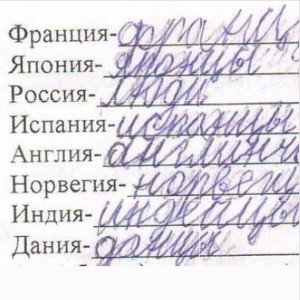 Франция- франц
Япония- японцы
Россия- люди
Испания- испанцы
Англия- англич
Норвегия- норвеж
Индия- индейцы
Дания- данцы